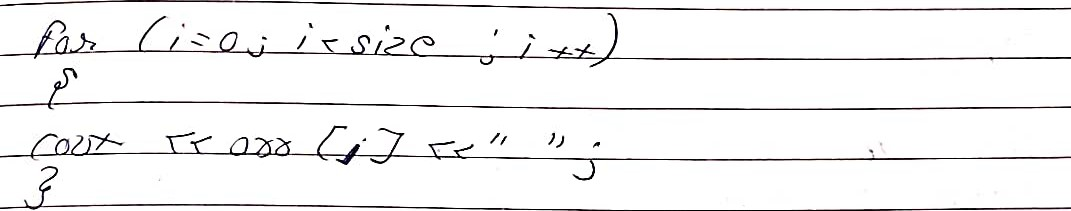 for (i=0; i<size ; i++)
{
cout << arr [i] <<" ";
}